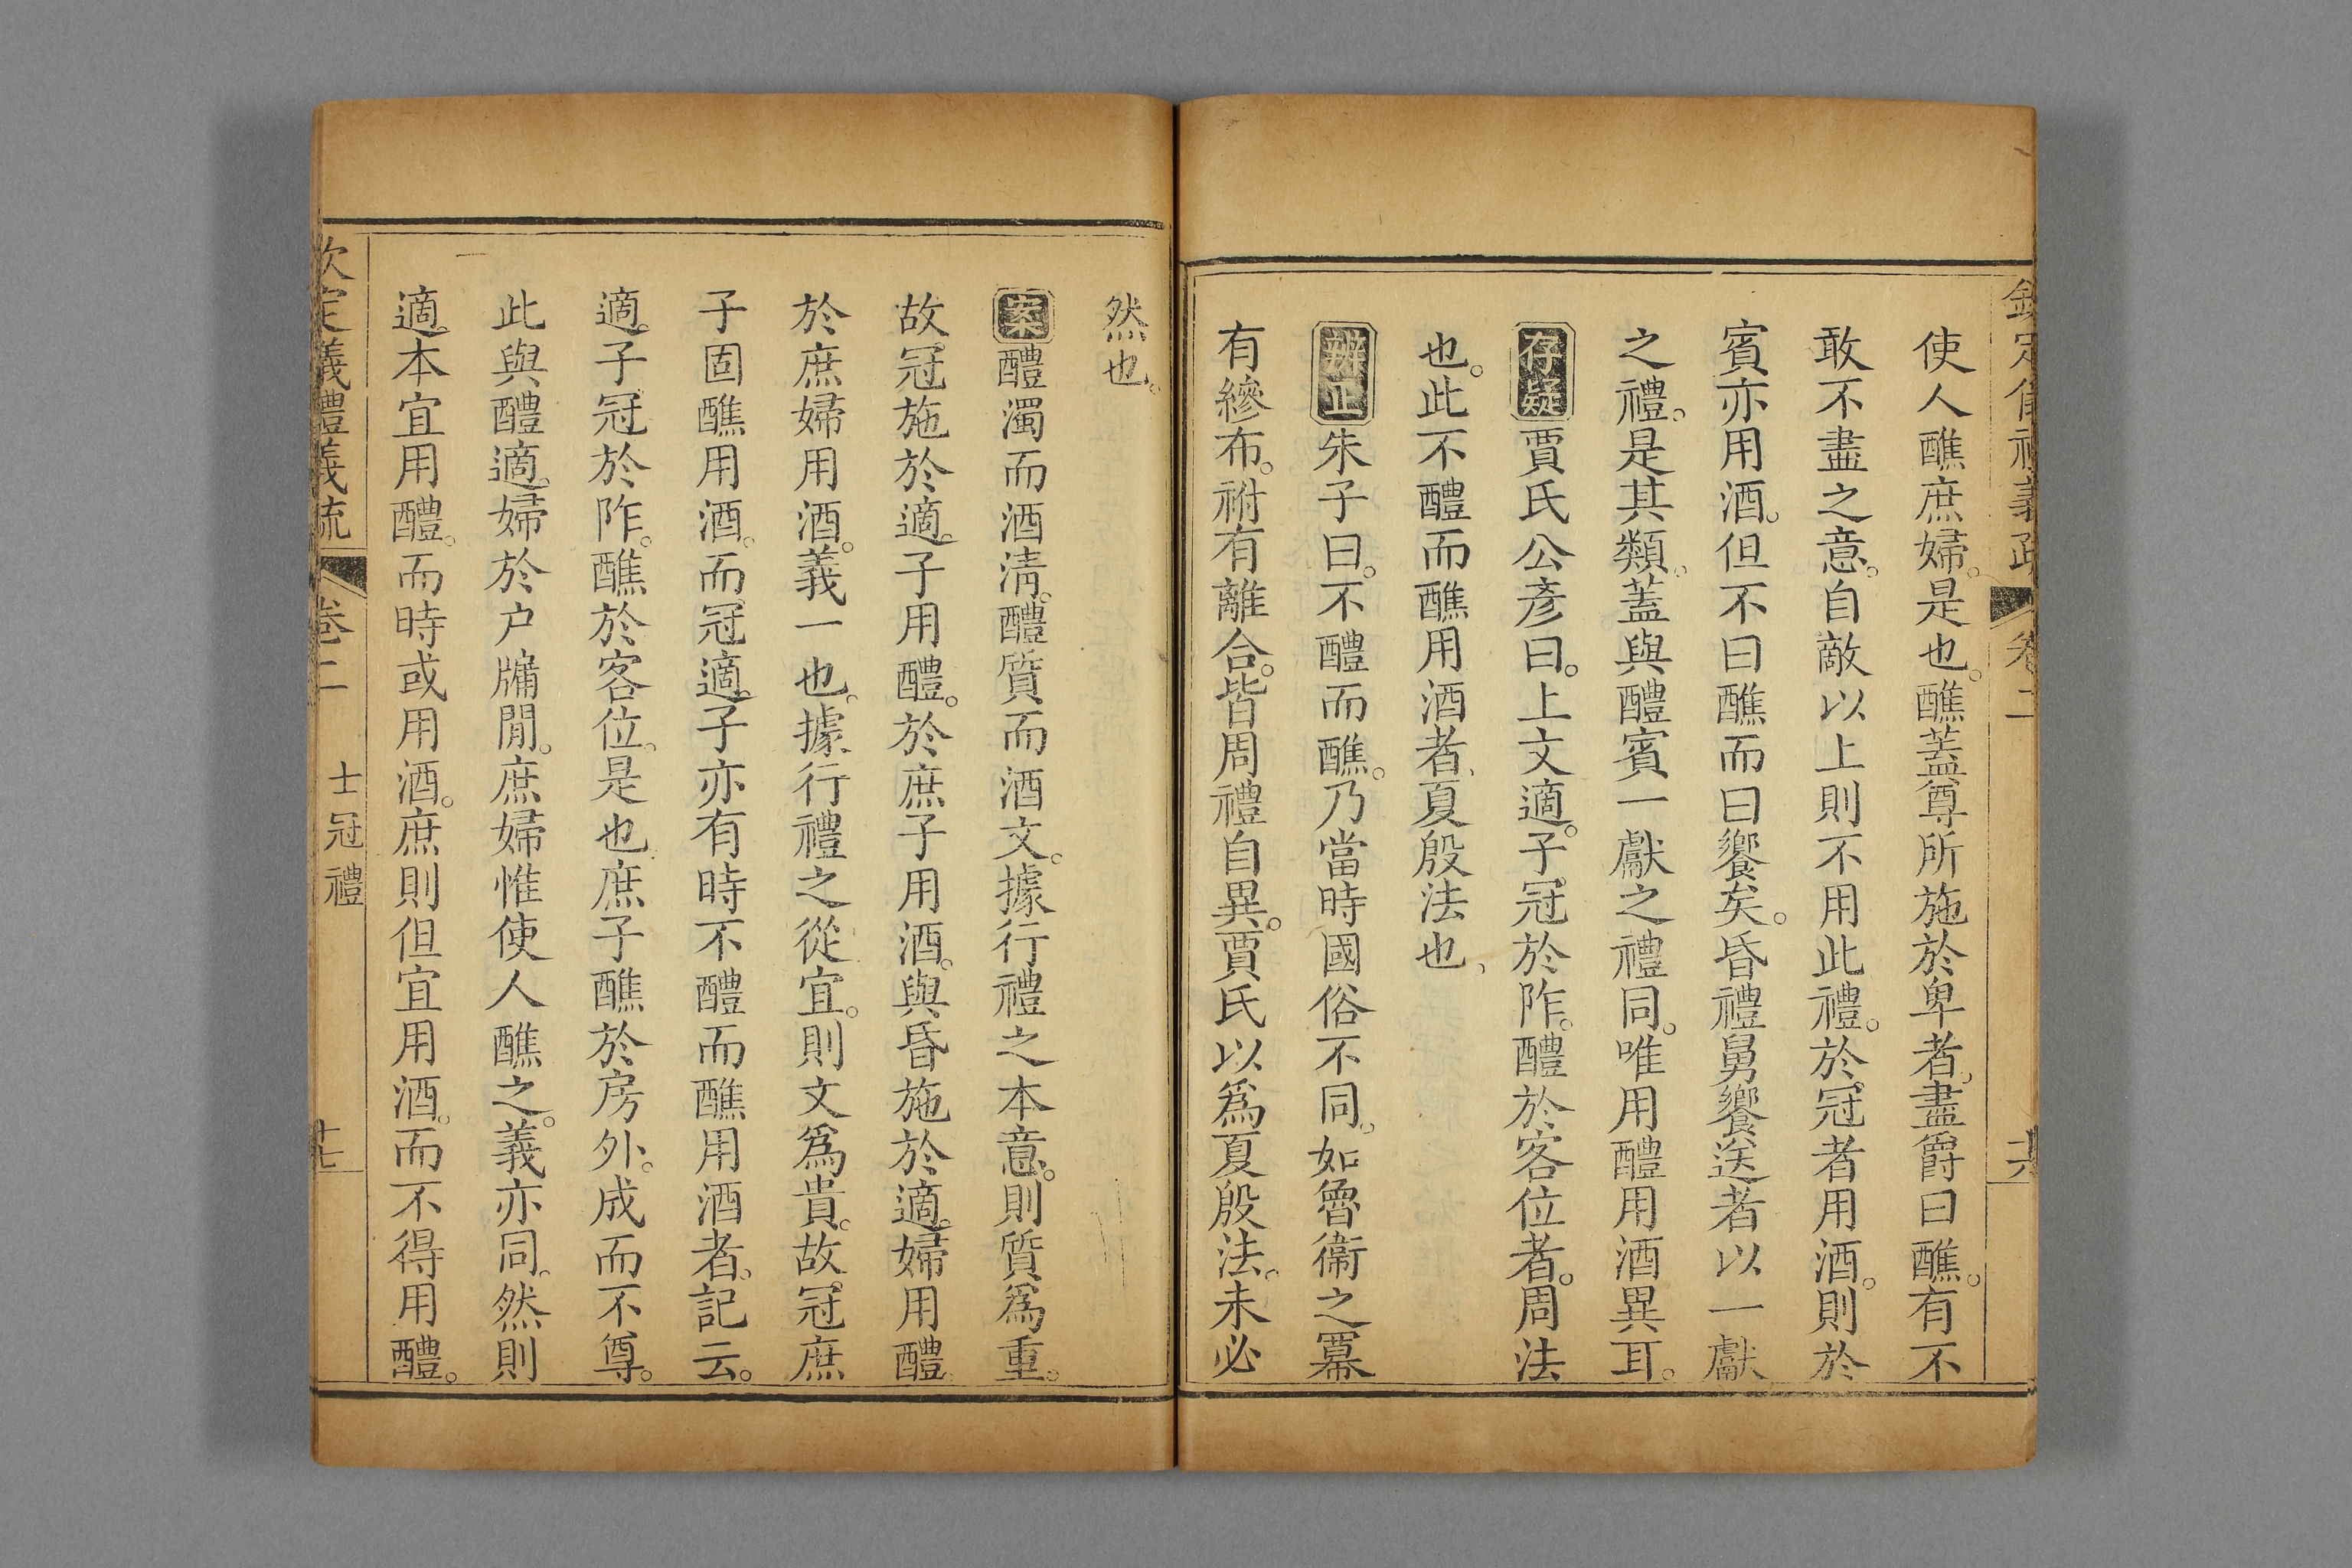 欽定儀禮義疏 卷二 十六
使人醮庶婦。是也。醮蓋尊所施於卑者。盡爵曰醮。有不
敢不盡之意。自敵以上則不用此禮。於冠者用酒。則於
賓亦用酒。但不曰醮而曰饗矣。昏禮舅饗送者以一獻
之禮。是其類。蓋與醴賓一獻之禮同。唯用醴用酒異耳。
存疑 賈氏公彥曰。上文適子冠於阼。醴於客位者。周法
也。此不醴而醮用酒者、夏殷法也、
辨正 朱子曰。不醴而醮。乃當時國俗不同。如魯衞之冪
有縿布。祔有離合。皆周禮自異。賈氏以爲夏殷法。未必
然也。
案 醴濁而酒淸。醴質而酒文。據行禮之本意。則質爲重。
故冠施於適子用醴。於庶子用酒。與昏施於適婦用醴
於庶婦用酒。義一也。據行禮之從宜。則文爲貴。故冠庶
子固醮用酒。而冠適子亦有時不醴而醮用酒者。記云。
適子冠於阼。醮於客位。是也。庶子醮於房外。成而不尊。
此與醴適婦於户牖閒。庶婦惟使人醮之。義亦同。然則
適本宜用醴。而時或用酒。庶則但宜用酒。而不得用醴。
欽定義禮義疏 卷二 士冠禮 十七